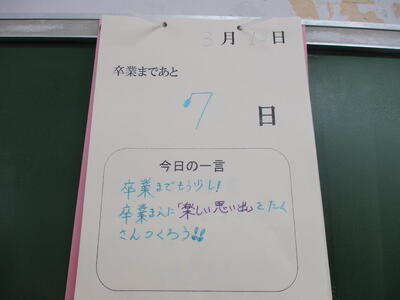 3月 日
卒業まであと
7 日
今日の一言
卒業までもう少し!
卒業まえに「楽しい思い出」をたく
さんつくろう!!